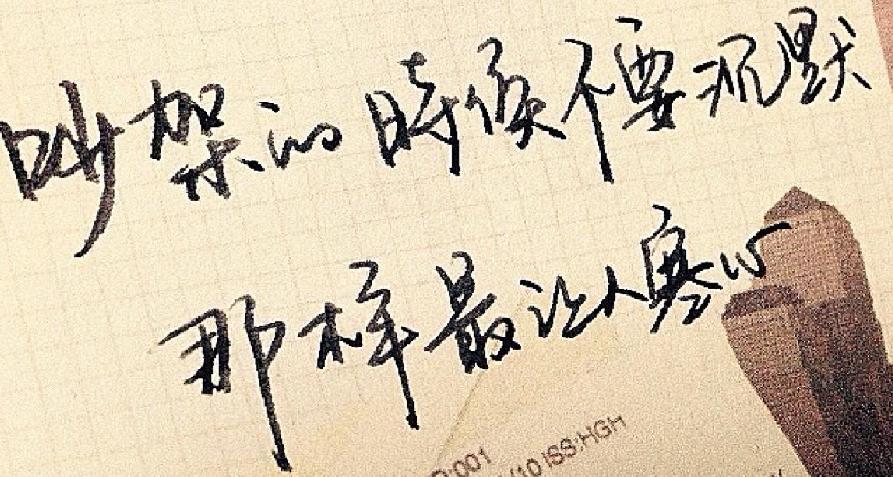 吵架的時候不要沉默
那样最让人寒心
:001
/10 ISS:HGH